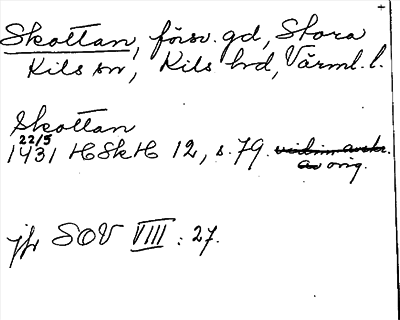 +
Skottan, försv. gd, Stora
Kils sn, Kils hd, Värml. l.
Skottan
22/5
1431 HSkH 12, s. 79. vidim. avskr.
av orig.
jfr SOV VIII : 27.